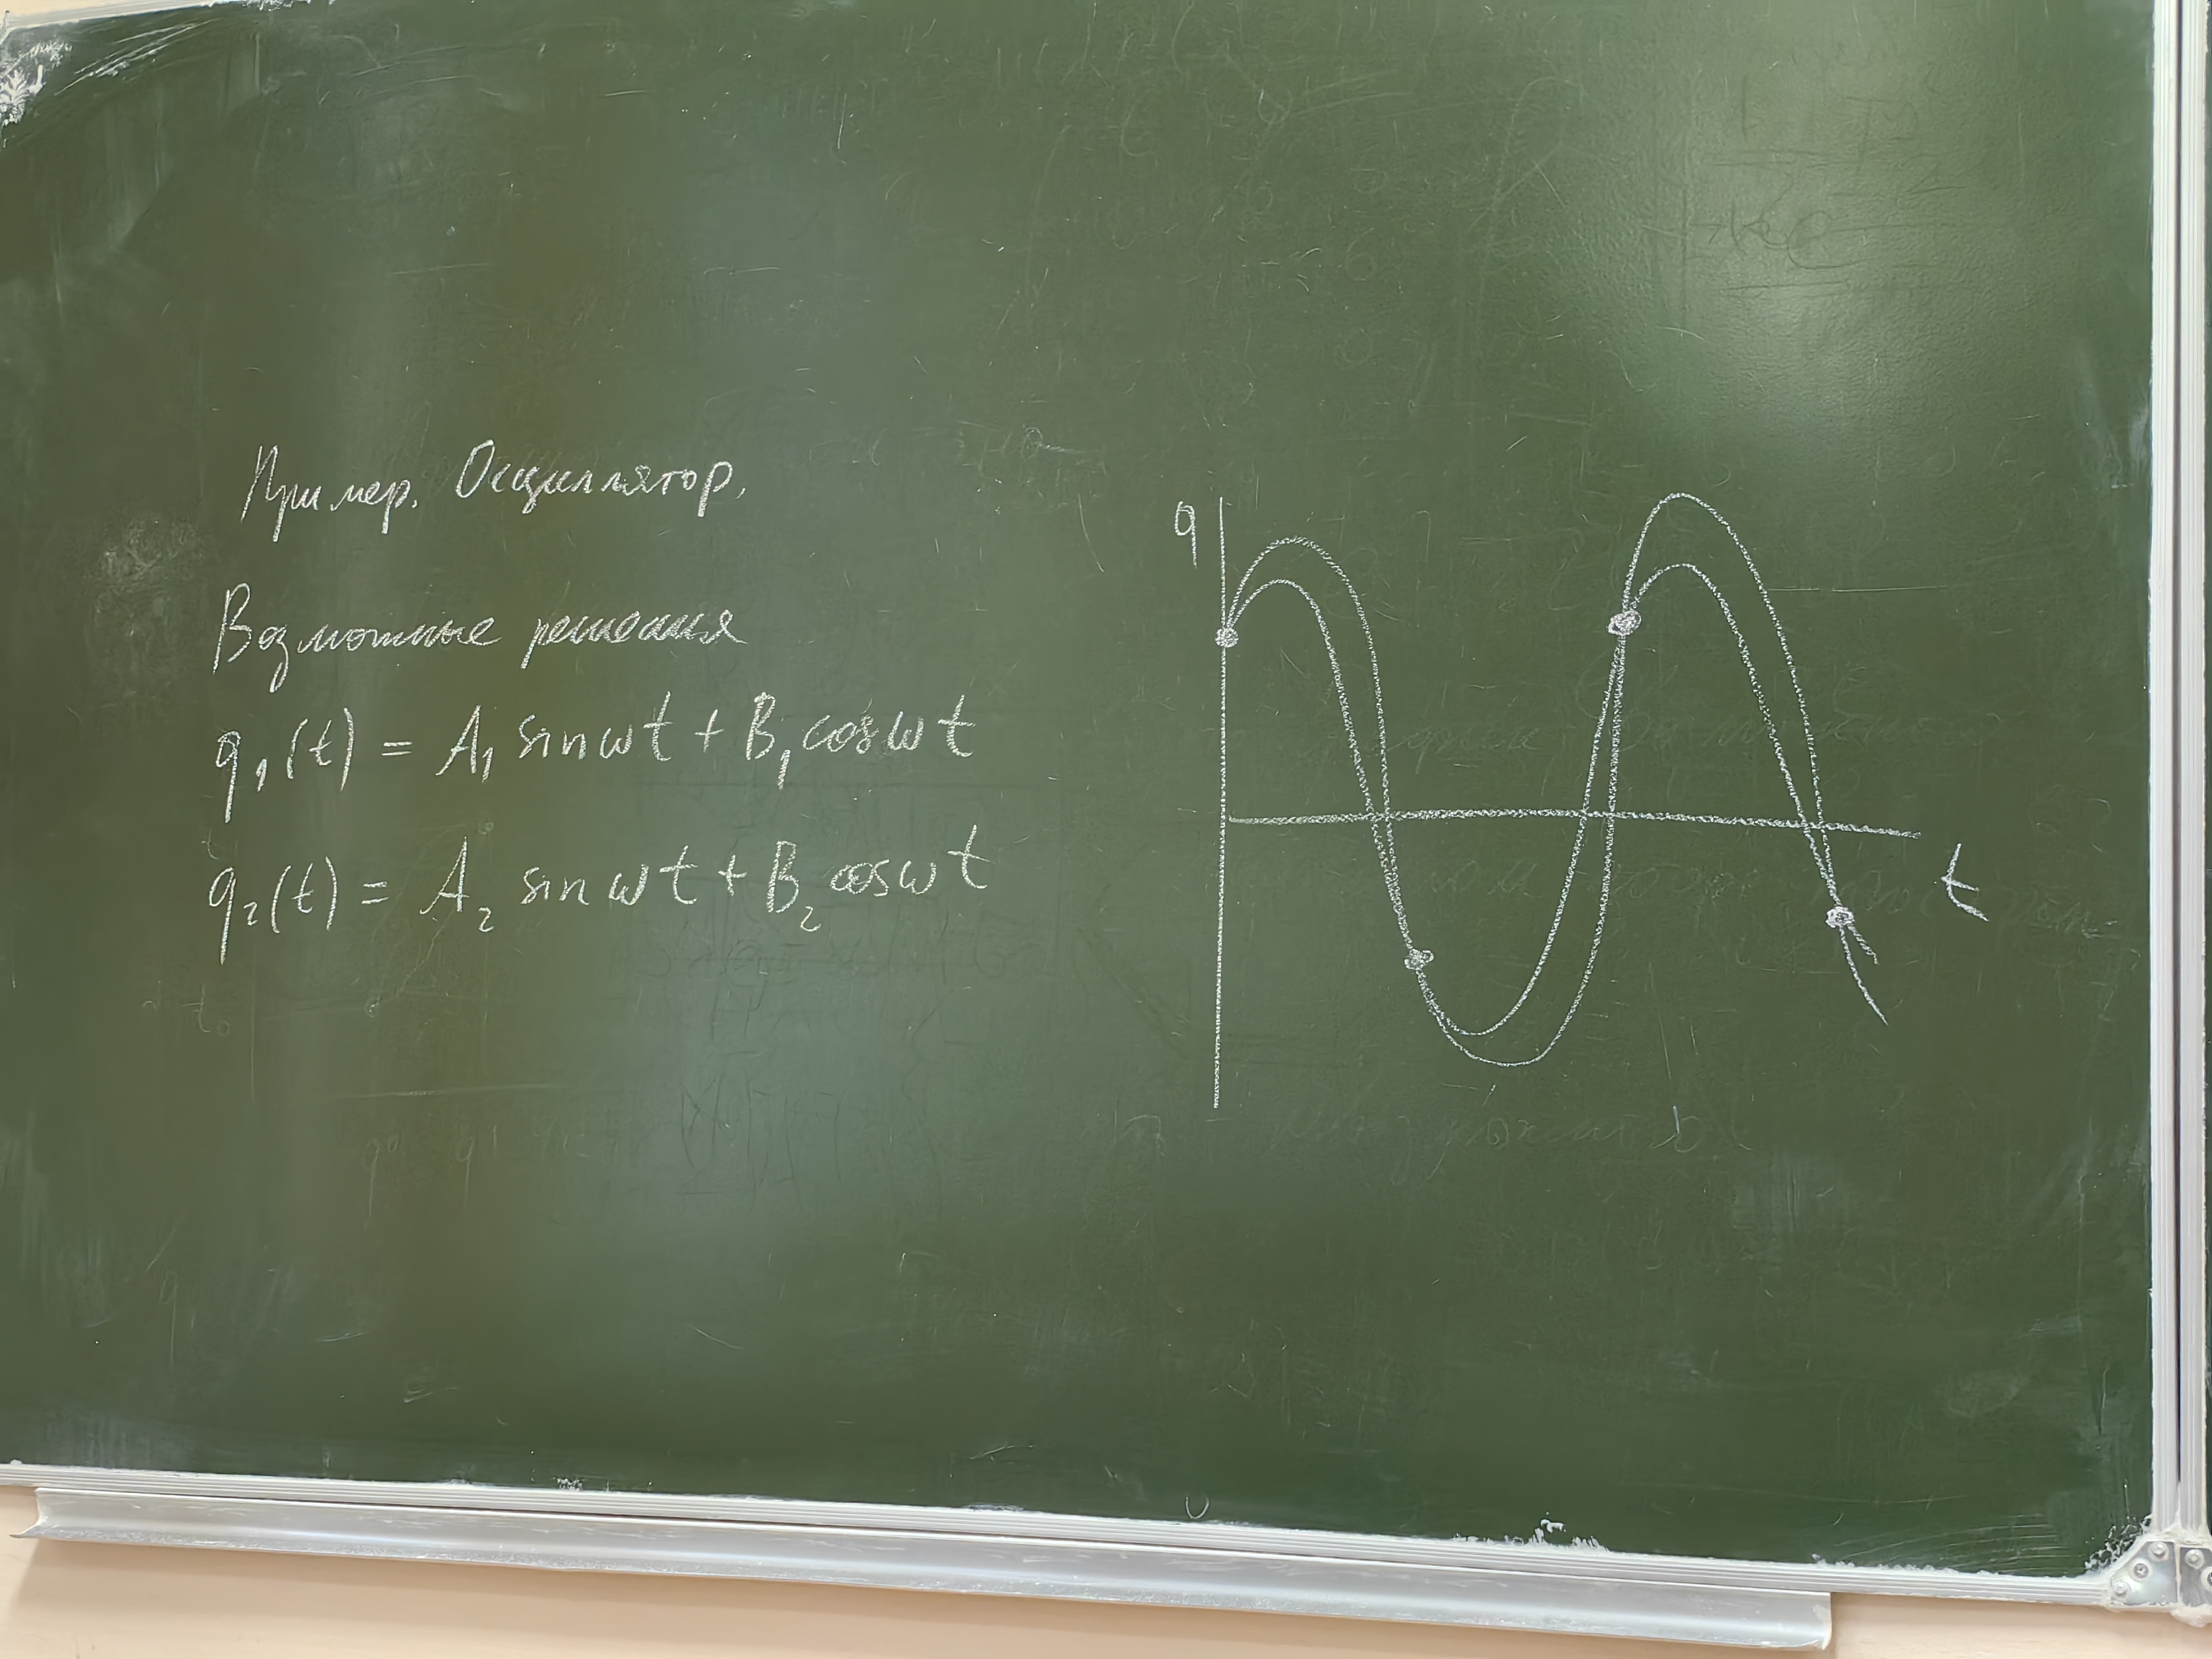 Пример. Осциллятор.
Возможные решения
q₁(t) = A₁ sin ωt + B₁ cos ωt
q₂(t) = A₂ sin ωt + B₂ cos ωt
q
t